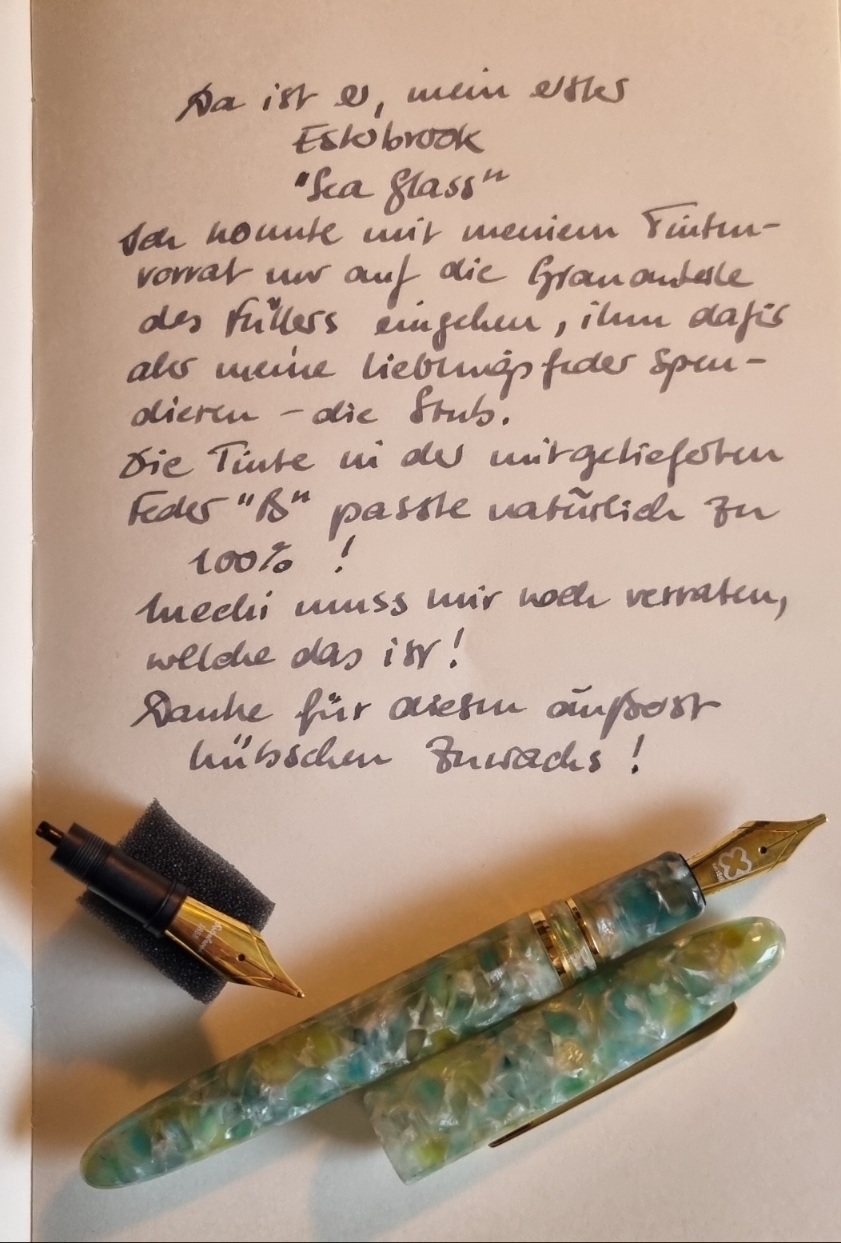 Da ist er, mein erster
Esterbrook
"Sea Glass"
Ich konnte mit meinem Tinten-
vorrat nur auf die Grauanteile
des Füllers eingehen, ihm dafür
aber meine Lieblingsfeder spen-
dieren – die Stub.
Die Tinte in der mitgelieferten
Feder "B" passte natürlich zu
100% !
muss mir noch verraten,
welche das ist!
Danke für diesen äußerst
hübschen Zuwachs !